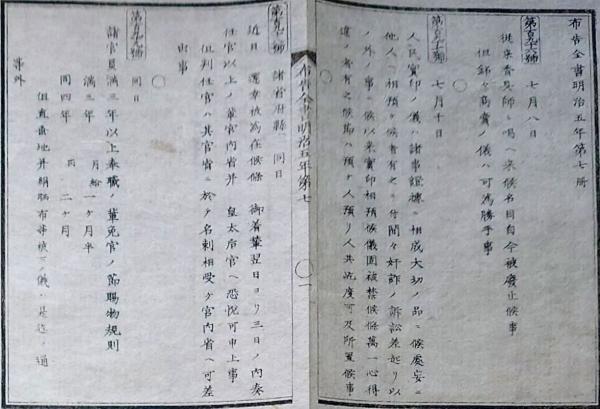 布告全書明治五年第七册
第百九十六號 七月八日
従来香具師ト唱ヘ来候名目自今被廃止候事
但銘々商賣ノ儀ハ可為勝手事
第百九十號 七月十日
人民實印ノ儀ハ諸事證據ニ相成大切ノ品ニ候處妄ニ
他人ヘ相預ケ候者有之ヨリ間々奸詐ノ訴訟差起リ以
ノ外ノ事ニ候以来實印相預候儀固被禁候條萬一心得
違ノ者有之候節ハ預ケ人預リ人共屹度可及所置候事
布告全書明治五年第七
一
號 諸官省府縣 同日
近日 還幸被為在候條 御着輦翌日ヨリ三日ノ内奏
任官以上ノ輩宮内省并 皇太后宮ヘ恐悦可申上事
但判任官ハ其官省ニ於テ名刺相受ケ宮内省ヘ可差
出事
同日
諸官員満三年以上奉職ノ輩免官ノ節賜物規則
満三年 月給一ケ月半
同四年 同 二ケ月
事外
但直垂地并絹晒布等被下ノ儀ハ是迄ノ通